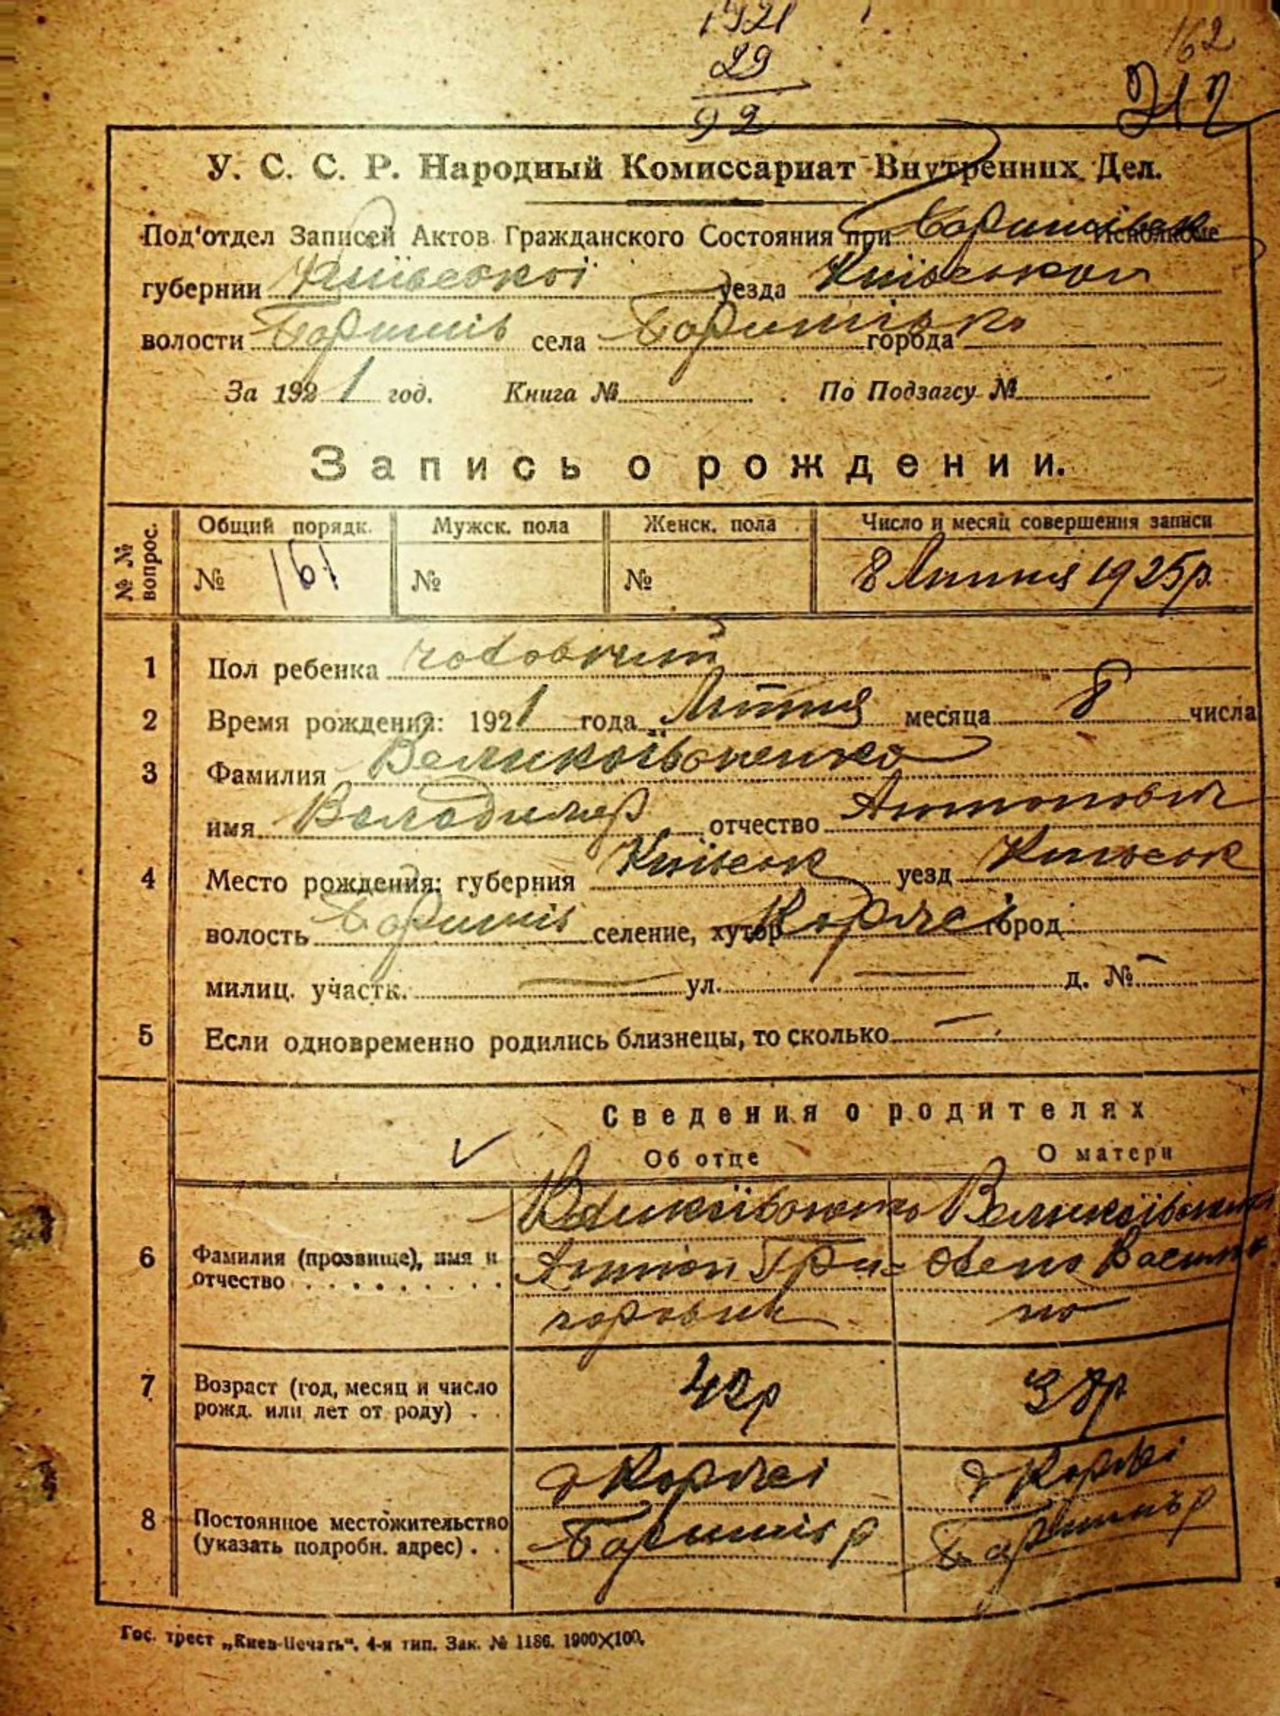 1921
29
92
162
212
У. С. С. Р. Народный Комиссариат Внутренних Дел.
Под'отдел Записей Актов Гражданского Состояния при Исполкоме
губернии Київської уезда Київського
волости Баришів села города
За 1921 год. Книга № По Подзагсу №
Запись о рождении.
№№ вопрос. Общий порядк. Мужск. пола Женск. пола Число и месяц совершения записи
№ 161 № № 8 Липня 1925р.
1 Пол ребенка
2 Время рождения: 1921 года Липня месяца 8 числа
3 Фамилия Великоівоненко
имя Володимер отчество Антонович
4 Место рождения: губерния Київськ уезд Київськ
волость Баришів селение, хутор Коржеі город
милиц. участк. — ул. — д. № —
5 Если одновременно родились близнецы, то сколько —
Сведения о родителях
Об отце О матери
6 Фамилия (прозвище), имя и отчество
Великоівоненко
Антон Гри=
горович
Великоівоненко
на
7 Возраст (год, месяц и число рожд. или лет от роду) . . 42р 38р
8 Постоянное местожительство (указать подробн. адрес) . .
Коржеі
Баришів р
Коржі
Баришів р
Гос. трест „Киев-Печать". 4-я тип. Зак. № 1186. 1900×100.